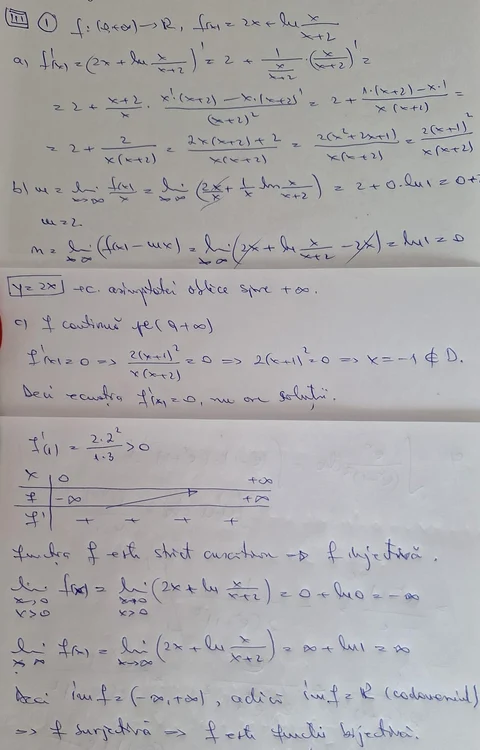 III ① f: (0,+∞) → R, f(x) = 2x + ln x/(x+2)
a) f'(x) = (2x + ln x/(x+2))' = 2 + 1/(x/(x+2)) · (x/(x+2))' =
= 2 + (x+2)/x · (x'(x+2) - x·(x+2)')/(x+2)² = 2 + (1·(x+2) - x·1)/(x(x+2)) =
= 2 + 2/(x(x+2)) = (2x(x+2)+2)/(x(x+2)) = 2(x²+2x+1)/(x(x+2)) = 2(x+1)²/(x(x+2))
b) m = lim x→∞ f(x)/x = lim x→∞ (2x/x + 1/x ln x/(x+2)) = 2 + 0·ln1 = 0+2
m = 2.
n = lim x→∞ (f(x) - mx) = lim x→∞ (2x + ln x/(x+2) - 2x) = ln1 = 0
y = 2x ec. asimptotei oblice spre +∞.
c) f continuă pe (0,+∞)
f'(x) = 0 => 2(x+1)²/(x(x+2)) = 0 => 2(x+1)² = 0 => x = -1 ∉ D.
Deci ecuația f'(x) = 0, nu are soluții.
f'(1) = 2·2²/(1·3) > 0
x | 0 +∞
f | -∞ → +∞
f' | + + + +
funcția f este strict crescătoare → f injectivă.
lim x→0 x>0 f(x) = lim x→0 x>0 (2x + ln x/(x+2)) = 0 + ln0 = -∞
lim x→∞ f(x) = lim x→∞ (2x + ln x/(x+2)) = ∞ + ln1 = ∞
Deci imf = (-∞,+∞), adică imf = R (codomeniul)
=> f surjectivă => f este funcție bijectivă.